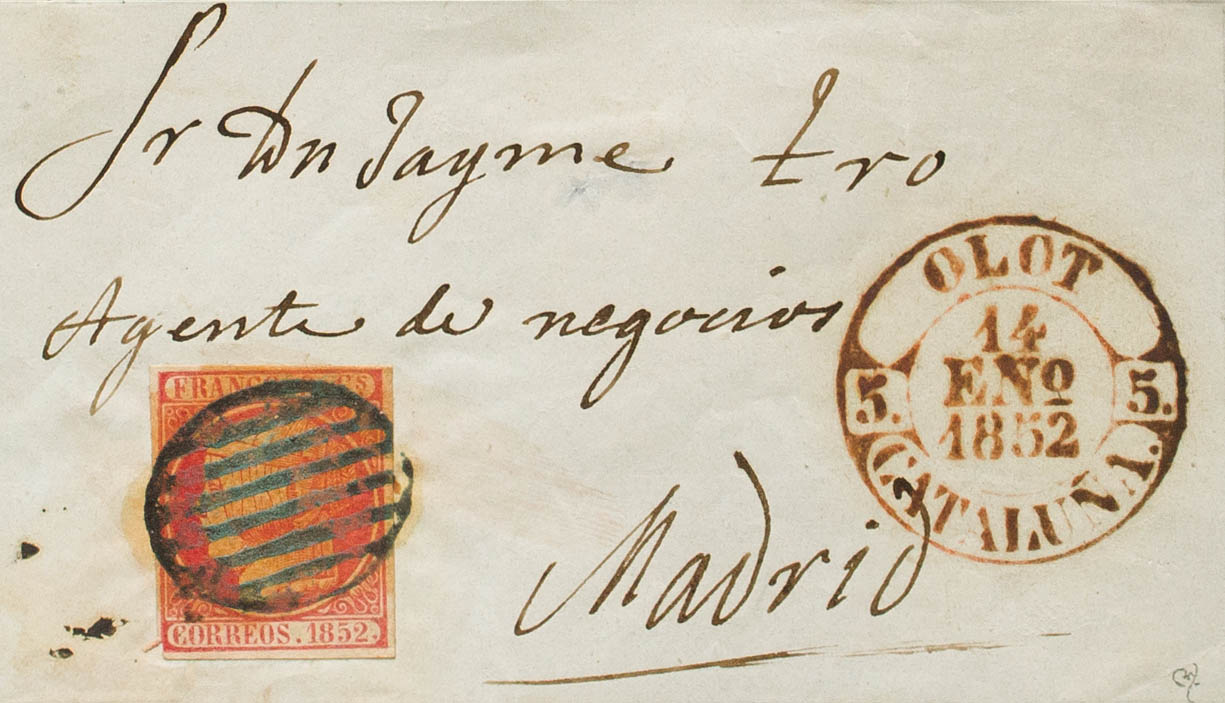 Sr Dn Jayme tro
Agente de negocios
Madrid
OLOT
14
ENº
1852
5. 5.
CATALUÑA.
FRANCO Gs
CORREOS. 1852.